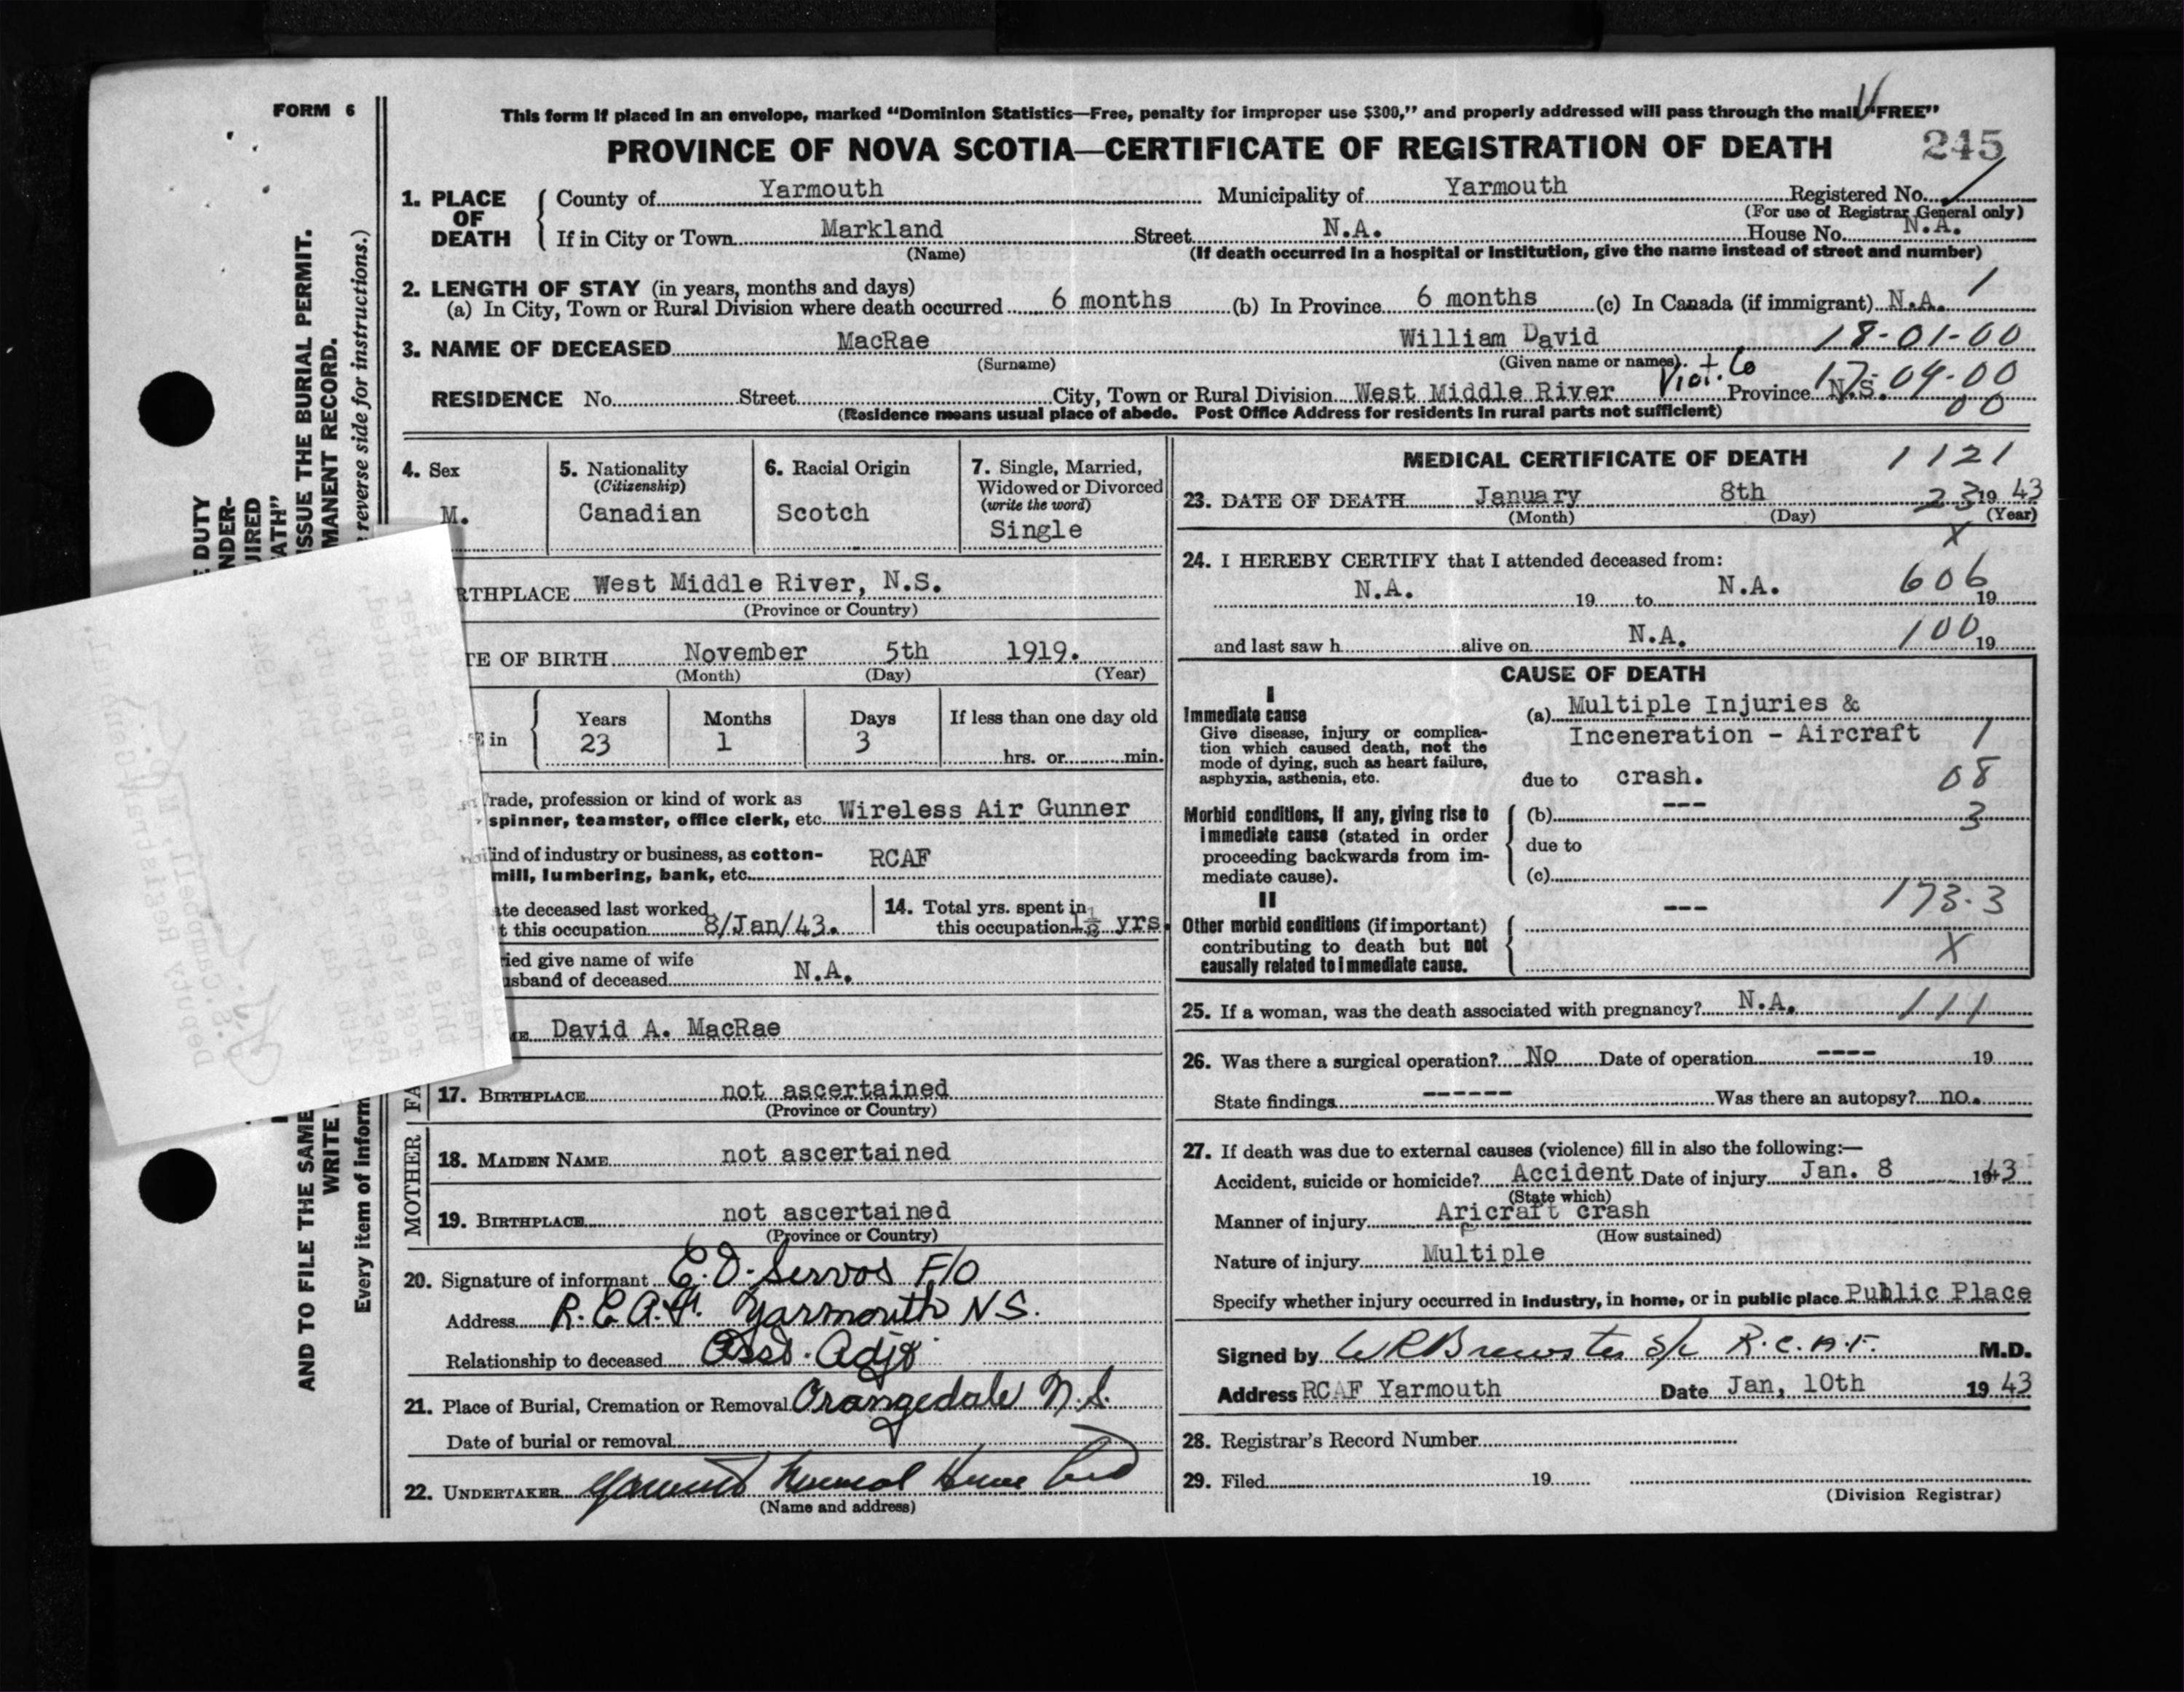 FORM 6
This form if placed in an envelope, marked "Dominion Statistics—Free, penalty for improper use $300," and properly addressed will pass through the mail "FREE"
PROVINCE OF NOVA SCOTIA—CERTIFICATE OF REGISTRATION OF DEATH 245
1. PLACE OF DEATH
County of Yarmouth Municipality of Yarmouth Registered No.
(For use of Registrar General only)
If in City or Town Markland Street N.A. House No. N.A.
(Name) (If death occurred in a hospital or institution, give the name instead of street and number)
2. LENGTH OF STAY (in years, months and days) 1
(a) In City, Town or Rural Division where death occurred 6 months (b) In Province 6 months (c) In Canada (if immigrant) N.A.
3. NAME OF DECEASED MacRae William David 18-01-00
(Surname) (Given name or names)
RESIDENCE No. Street City, Town or Rural Division West Middle River Vict. Co Province N.S. 17-04-00
(Residence means usual place of abode. Post Office Address for residents in rural parts not sufficient) 00
4. Sex
M.
5. Nationality
(Citizenship)
Canadian
6. Racial Origin
Scotch
7. Single, Married,
Widowed or Divorced
(write the word)
Single
RTHPLACE West Middle River, N.S.
(Province or Country)
TE OF BIRTH November 5th 1919.
(Month) (Day) (Year)
E in
Years Months Days If less than one day old
23 1 3 hrs. or min.
rade, profession or kind of work as
spinner, teamster, office clerk, etc. Wireless Air Gunner
ind of industry or business, as cotton-
mill, lumbering, bank, etc. RCAF
te deceased last worked
t this occupation 8/Jan/43.
14. Total yrs. spent in
this occupation 1½ yrs.
ied give name of wife
usband of deceased N.A.
ME David A. MacRae
FA
17. BIRTHPLACE not ascertained
(Province or Country)
MOTHER
18. MAIDEN NAME not ascertained
19. BIRTHPLACE not ascertained
(Province or Country)
20. Signature of informant E. D. Servos F/O
Address R.C.A.F. Yarmouth N S.
Relationship to deceased Asst. Adjt.
21. Place of Burial, Cremation or Removal Orangedale N.S.
Date of burial or removal
22. UNDERTAKER Yarmouth Funeral Home Ltd
(Name and address)
MEDICAL CERTIFICATE OF DEATH 1121
23. DATE OF DEATH January 8th 23 19 43
(Month) (Day) (Year)
X
24. I HEREBY CERTIFY that I attended deceased from:
N.A. 19 to N.A. 606 19
and last saw h alive on N.A. 100 19
CAUSE OF DEATH
I
Immediate cause
Give disease, injury or complica-
tion which caused death, not the
mode of dying, such as heart failure,
asphyxia, asthenia, etc.
(a) Multiple Injuries &
Inceneration - Aircraft 1
due to crash. 08
Morbid conditions, if any, giving rise to
immediate cause (stated in order
proceeding backwards from im-
mediate cause).
(b) --- 3
due to
(c)
II
Other morbid conditions (if important)
contributing to death but not
causally related to immediate cause.
--- 173.3
X
25. If a woman, was the death associated with pregnancy? N.A. 111
26. Was there a surgical operation? No Date of operation ---- 19
State findings ------ Was there an autopsy? no.
27. If death was due to external causes (violence) fill in also the following:—
Accident, suicide or homicide? Accident Date of injury Jan. 8 1943
(State which)
Manner of injury Aricraft crash
(How sustained)
Nature of injury Multiple
Specify whether injury occurred in industry, in home, or in public place Public Place
Signed by W R Brewster S/L R.C.A.F. M.D.
Address RCAF Yarmouth Date Jan, 10th 19 43
28. Registrar's Record Number
29. Filed 19
(Division Registrar)
DUTY
NDER-
UIRED
ATH"
ISSUE THE BURIAL PERMIT.
MANENT RECORD.
reverse side for instructions.)
AND TO FILE THE SAME
WRITE
Every item of inform